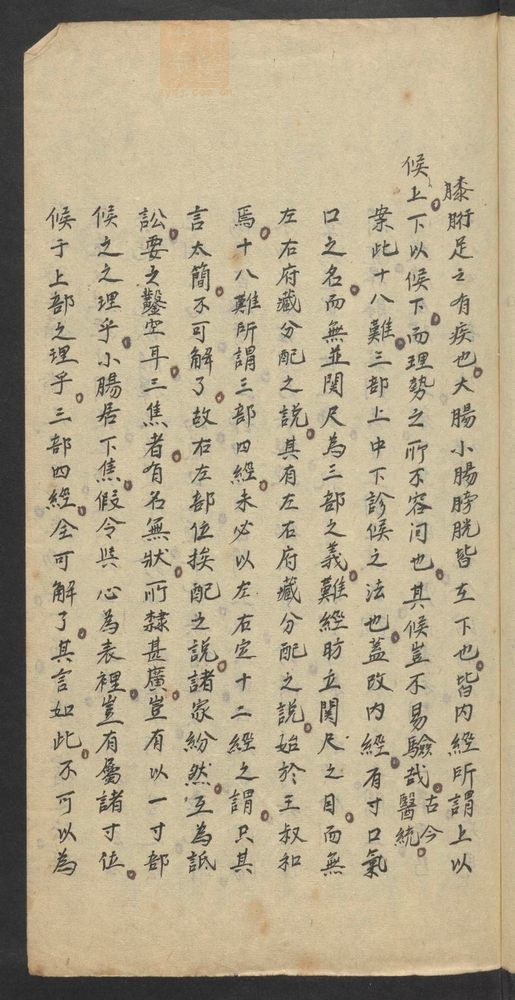 膝胻足之有疾也大腸小腸脬胱皆在下也皆内經所謂上以
候上下以候下而理勢之所不容间也其候豈不易驗哉古今醫統
案此十八難三部上中下診候之法也蓋攷内經有寸口氣
口之名而無並関尺為三部之義難經昉立関尺之目而無
左右府藏分配之説其有左右府藏分配之説始於王叔和
焉十八難所謂三部四經未必以左右定十二經之謂只其
言太簡不可解了故右左部位挨配之説諸家紛然互為詆
訟要之鑿空耳三焦者有名無狀所隸甚廣豈有以一寸部
候之之理乎小腸居下焦假令與心為表裡豈有屬諸寸位
候于上部之理乎三部四經全可解了其言如此不可以為